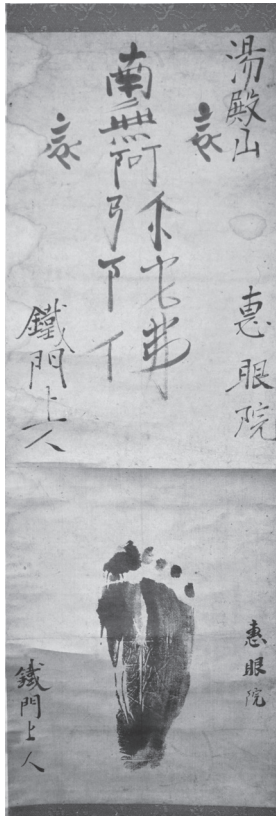 湯殿山
惠眼院
南無阿弥陀佛
鐵門上人
惠眼院
鐵門上人